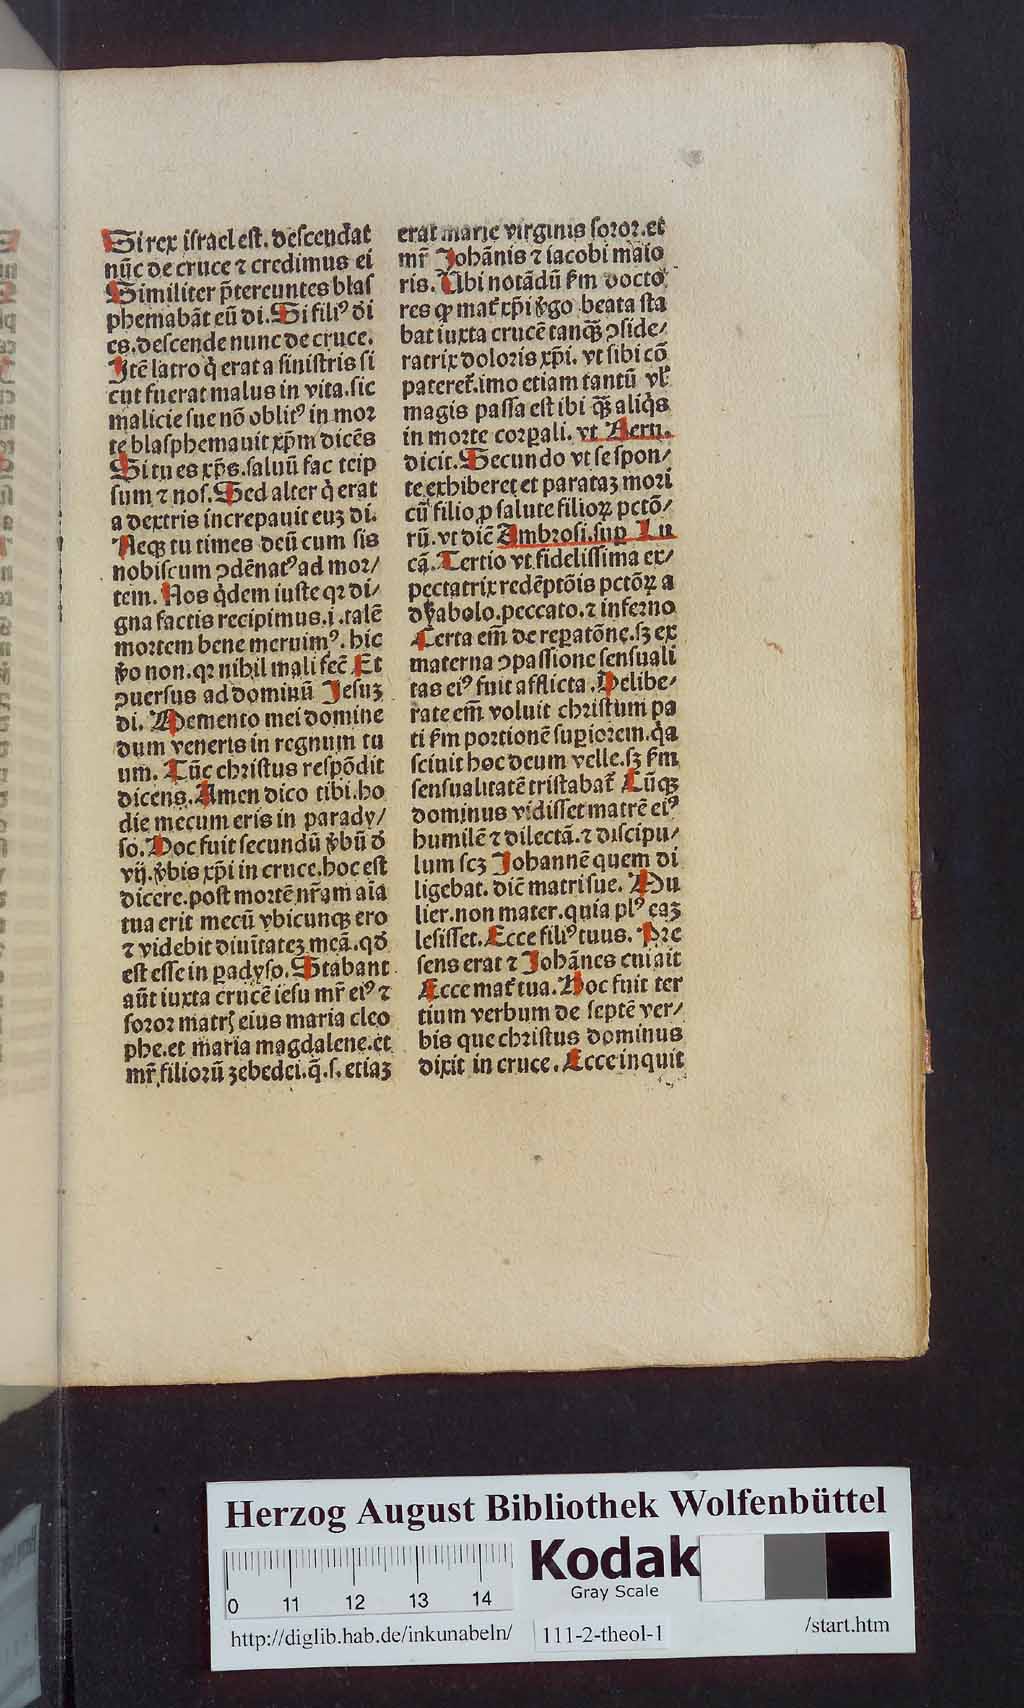 Si rex iſrael eſt. deſcendat
nūc de cruce ⁊ credimus ei
Similiter p̄tereuntes blaſ
phemabāt eū di. Si filiꝰ di
es. deſcende nunc de cruce.
Itē latro q̇ erat a ſiniſtris ſi
cut fuerat malus in vita. ſic
malicie ſue nō oblitꝰ in mor
te blaſphemauit xp̄m dicēs
Si tu es xp̄s. ſaluū fac teip
ſum ⁊ noſ. Sed alter q̇ erat
a dextris increpauit euꝫ di.
Neqꝫ tu times deū cum ſis
nobiſcum ꝯdēnatꝰ ad mor/
tem. Nos q̇dem iuſte qꝛ di/
gna factis recipimus. i. talē
mortem bene meruimꝰ. hic
v̓o non. qꝛ nihil mali fec̄ Et
ꝯuerſus ad dominū Jeſuꝫ
di. Memento mei domine
dum veneris in regnum tu
um. Tūc chriſtus reſpōdit
dicens. Amen dico tibi. ho
die mecum eris in parady/
ſo. Hoc fuit ſecundū v̓bū d̓
vij. v̓bis xp̄i in cruce. hoc eſt
dicere. poſt mortē nr̄am aīa
tua erit mecū vbicunqꝫ ero
⁊ videbit diuītateꝫ meā. qd̓
eſt eſſe in ꝑadyſo. Stabant
aūt iuxta crucē ieſu mr̄ eiꝰ ⁊
ſoror matrꝭ eius maria cleo
phe. et maria magdalene. et
mr̄ filiorū zebedei. q̄. ſ. etiaꝫ
erat marie virginis ſoror. et
mr̄ Johānis ⁊ iacobi maio
ris. Ubi notādū ſm̄ docto
res ꝙ mat̓ xp̄i v̓go beata ſta
bat iuxta crucē tanqꝫ ꝯſide/
ratrix doloris xp̄i. vt ſibi cō
pateret̓. imo etiam tantū vl̓
magis paſſa eſt ibi qꝫ aliq̇s
in morte corꝑali. vt Bern.
dicit. Secundo vt ſe ſpon/
te exhiberet et parataꝫ mori
cū filio ꝓ ſalute filioꝝ pctō/
rū. vt dic̄ Ambroſi. ſuꝑ Lu
cā. Tertio vt fideliſſima ex/
pectatrix redēptōis pctōꝝ a
dyabolo. peccato. ⁊ inferno
Certa em̄ de reꝑatōne. ſꝫ ex
materna ꝯpaſſione ſenſuali
tas eiꝰ fuit afflicta. Delibe/
rate em̄ voluit chriſtum pa
ti ſm̄ portionē ſuꝑiorem. q̇a
ſciuit hoc deum velle. ſꝫ ſm̄
ſenſualitatē triſtabat̓ Cūqꝫ
dominus vidiſſet matrē eiꝰ
humilē ⁊ dilectā. ⁊ diſcipu/
lum ſcꝫ Johannē quem di
ligebat. dic̄ matri ſue. Mu
lier. non mater. quia plꝰ eaꝫ
leſiſſet. Ecce filiꝰ tuus. Pre
ſens erat ⁊ Johānes cui ait
Ecce mat̓ tua. Hoc fuit ter
tium verbum de ſeptē ver/
bis que chriſtus dominus
dixit in cruce. Ecce inquit
Herzog August Bibliothek Wolfenbüttel
0 11 12 13 14
Kodak
Gray Scale
http://diglib.hab.de/inkunabeln/ 111-2-theol-1 /start.htm